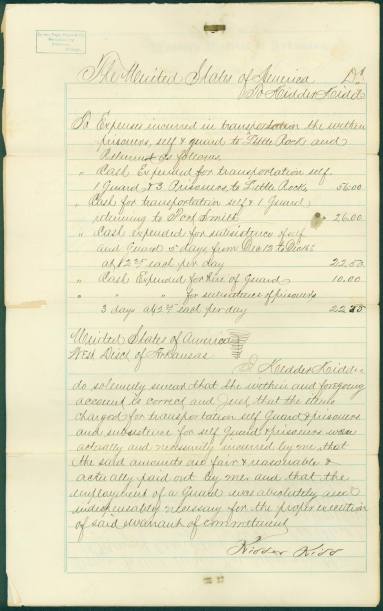 The United States of America Dr
To Kidder Kidd
To Expenses incurred in transportation the within
prisoners, self & guard to Little Rock and
Returned as follows
" Cash Expended for transportation self
1 Guard & 3 Prisoners to Little Rock 56.00
" Cash for transportation self & 1 Guard
returning to Fort Smith 26.00
" Cash expended for subsistence of self
and Guard 5 days from Dec 12 to Dec 16
at $2.25 each per day 22.50
" Cash Expended for hire of Guard 10.00
" " " for subsistence of prisoners
3 days at 2.25 each per day
United States of America
West Dist of Arkansas
I Kidder Kidd
do solemnly swear that the within and foregoing
account is correct and just that the
charged for transportation self Guard & prisoners
and subsistence for self Guard & prisoners were
actually and necessarily incurred by me, that
the said amounts are fair & reasonable &
actually paid out by me and that the
employment of a Guard was absolutely and
indispensably necessary for the proper execution
of said warrant of commitment
Kidder Kidd